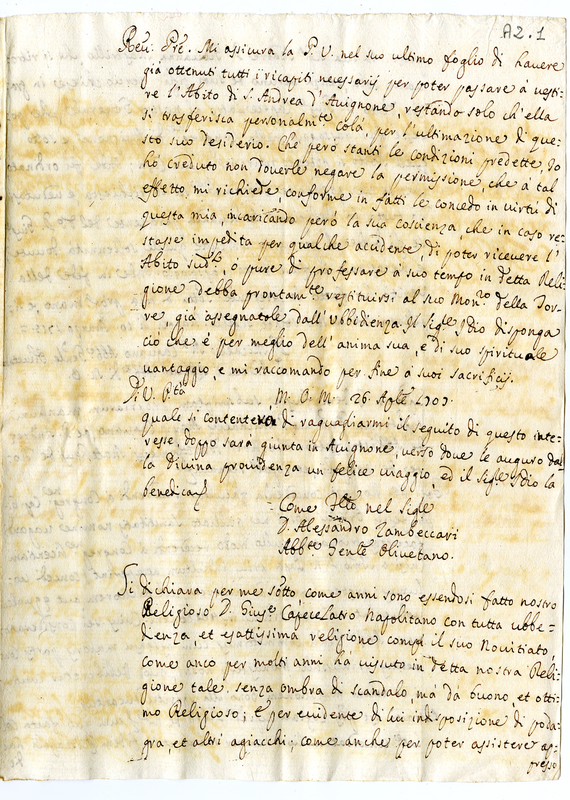 A2.1
Reu. Pre. Mi assicura la P. V. nel suo ultimo foglio di hauere
già ottenuti tutti i ricapiti necessarij per poter passare à uesti-
re l'Abito di S. Andrea d'Auignone, restando solo ch'ella
si trasferisca personalmte colà per l'ultimazione di que-
sto suo desiderio. Che però stanti le condizioni predette, Io
hò creduto non douerle negare la permissione, che à tal
effetto mi richiede, conforme in fatti le concedo in uirtù di
questa mia, incaricando però la sua coscienza, che in caso re-
stasse impedita per qualche accidente di poter riceuere l'
Abito sudto, ò pure di professare à suo tempo in detta Reli-
gione debba prontamte restituirsi al suo Monro della Tor-
re, già assegnatole dall'Vbbidienza. Il Sigre Idio disponga
ciò che è per meglio dell'anima sua, e di suo spirituale
uantaggio, e mi raccomando per fine à suoi sacrificij.
Di V. Pta M. O. M. 26 Aple 1703.
quale si contenterà di raguagliarmi il seguito di questo inte-
resse, doppo sarà giunta in Auignone, uerso doue le auguro dal-
la diuina prouidenza un felice uiaggio, ed il Sigre Idio la
benedica
Come Fllo nel Sigre
D. Alessandro Zambeccari
Abbte Genle Oliuetano.
Si dichiara per me sotto, come anni sono essendosi fatto nostro
Religioso D. Giuse Capecelatro Napolitano con tutta ubbe-
dienza et esattissima religione compì il suo Nouitiato,
come anco per molti anni hà uissuto in detta nostra Reli-
gione tale, senza ombra di scandalo, mà dà buono, et otti-
mo Religioso; e per euidente di lui indisposizione di poda-
gra, et altri agiacchi; come anche per poter assistere ap-
presso